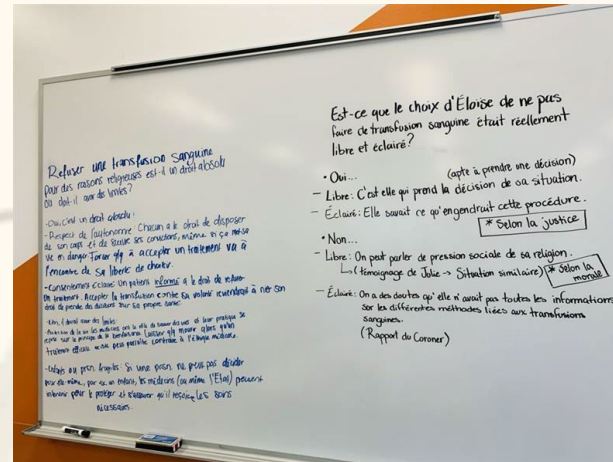 Refuser une transfusion sanguine
pour des raisons religieuses est-il un droit absolu
ou doit-il avoir des limites?
-Oui, c'est un droit absolu:
-Respect de l'autonomie: Chacun a le droit de disposer
de son corps et de suivre ses convictions, même si ça met sa
vie en danger. Forcer qlq à accepter un traitement va à
l'encontre de sa liberté de choisir.
-Consentement éclairé: Un patient informé a le droit de refuser
un traitement. Accepter la transfusion contre sa volonté reviendrait à nier son
droit de prendre des décisions sur sa propre santé.
-Non, il devrait avoir des limites:
de la vie: les médecins ont le rôle de sauver des vies et leur pratique se
repose sur le principe de la bienfaisance. Laisser qlq mourir alors qu'un
traitement efficace existe peut paraître contraire à l'éthique médicale.
-Enfants ou pers. fragiles: Si une pers. ne peut pas décider
pour elle-même, par ex. un enfant, les médecins (ou même l'État) peuvent
intervenir pour le protéger et s'assurer qu'il reçoive les soins
nécessaires.
Est-ce que le choix d'Éloise de ne pas
faire de transfusion sanguine était réellement
libre et éclairé?
• Oui...
(apte à prendre une décision)
- Libre: C'est elle qui prend la décision de sa situation.
- Éclairé: Elle savait ce qu'engendrait cette procédure.
* Selon la justice
• Non...
- Libre: On peut parler de pression sociale de sa religion.
↳ (témoignage de Jolie → Situation similaire)
* Selon la
morale
- Éclairé: On a des doutes qu'elle n'avait pas toutes les informations
sur les différentes méthodes liées aux transfusions
sanguines.
(Rapport du Coroner)